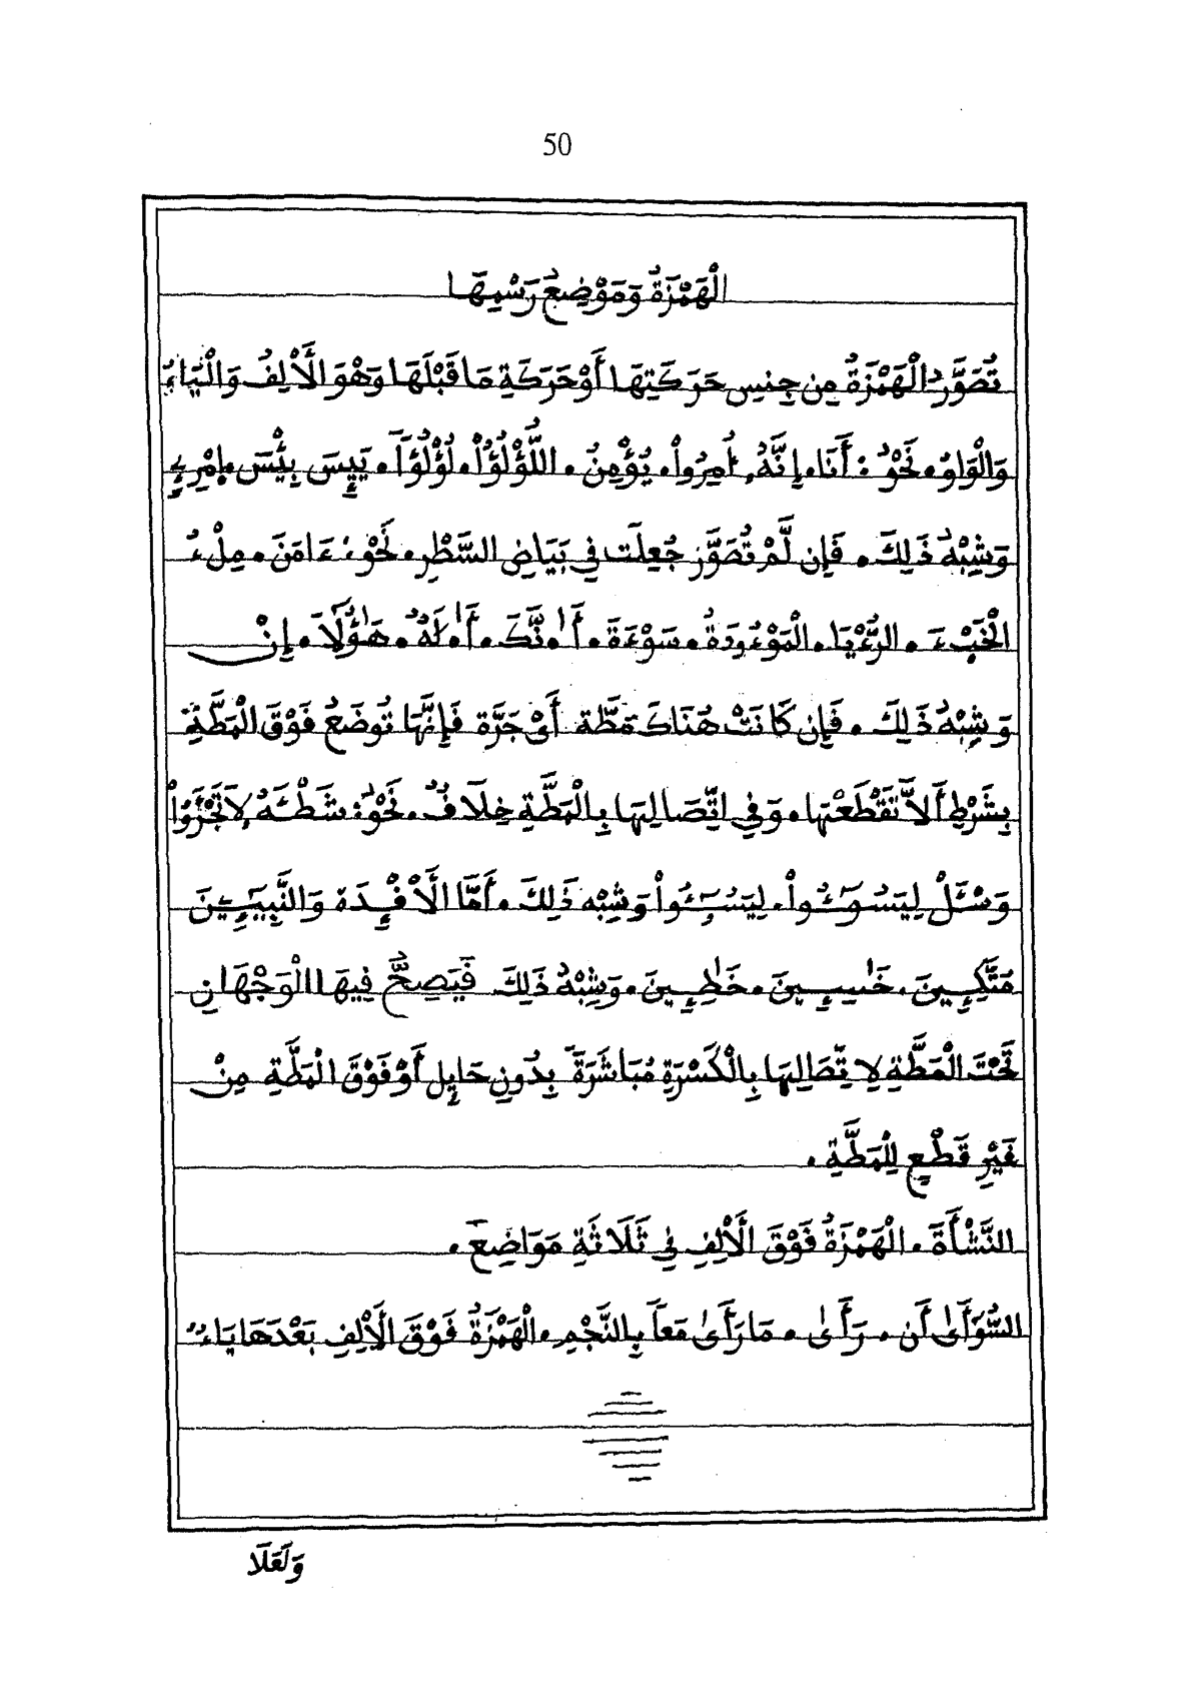 50
الْهَمْزَةُ وَمَوْضِعُ رَسْمِهَا
تُصَوَّرُ الْهَمْزَةُ مِن جِنسِ حَرَكَتِهَا أَوْ حَرَكَةِ مَا قَبْلَهَا وَهْوَ الْأَلِفُ وَالْيَاءُ
وَالْوَاوُ، نَحْوُ: أَنَا، إِنَّهُ، أُمِرُواْ، يُؤْمِنُ، اللُّؤْلُؤُاْ، لُؤْلُؤاً، يَيِٕسَ بِئْسَ، إِمْرِےٍٕ
وَشِبْهُ ذَلِكَ، فَإِن لَّمْ تُصَوَّرْ جُعِلَتْ فِي بَيَاضِ السَّطْرِ، نَحْوُ: ءَامَنَ، مِلْءُ
الْخَبْءَ، الرُّءْيَا، الْمَوْءُودَةُ، سَوْءَةَ، أَ.نَّكَ، أَ.لَهٌ، هَؤُلَآ، إِنْ
وَشِبْهُ ذَلِكَ، فَإِن كَانَتْ هُنَاكَ مَطَّة أَيْ جَرَّة فَإِنَّهَا تُوضَعُ فَوْقَ الْمَطَّةِ
بِشَرْطِ أَلاَّ تَقْطَعْهَا، وَفِي اتِّصَالِهَا بِالْمَطَّةِ خِلَافٌ، نَحْوُ: شَطْـَٔهُ لَا تَجْـَٔرُواْ
وَسْـَٔلْ لِيَسُـُٔواْ، لِيَسُـُٔواْ وَشِبْهِ ذَلِكَ، أَمَّا الَافْـِٕدَةَ وَالنَّبِيـِٕينَ
مُتَّكِـِٕينَ، خَٰسِـِٕينَ، خَٰطِـِٕينَ، وَشِبْهُ ذَلِكَ فَيَصِحُّ فِيهَا الْوَجْهَانِ
تَحْتَ الْمَطَّةِ لِاتِّصَالِهَا بِالْكَسْرَةِ مُبَاشَرَةً بِدُونِ حَايِٕلٍ أَوْ فَوْقَ الْمَطَّةِ مِنْ
غَيْرِ قَطْعٍ لِلْمَطَّةِ.
النَّشْأَةَ، الْهَمْزَةُ فَوْقَ الْأَلِفِ فِي ثَلَاثَةِ مَوَاضِعَ.
السُّوَأَىٰ أَن، رَأَىٰ، مَا رَأَىٰ مَعاً بِالنَّجْمِ، الْهَمْزَةُ فَوْقَ الْأَلِفِ بَعْدَهَا يَاءٌ
وَلَعَلَا